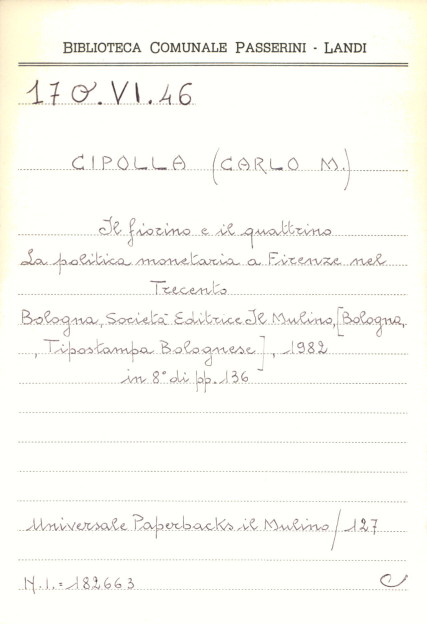 BIBLIOTECA COMUNALE PASSERINI - LANDI
170.VI.46
CIPOLLA (CARLO M.)
Il fiorino e il quattrino
La politica monetaria a Firenze nel
Trecento
Bologna, Società Editrice Il Mulino, [Bologna,
, Tipostampa Bolognese], 1982
in 8° di pp. 136
Universale Paperbacks il Mulino / 127
N.I. = 182663